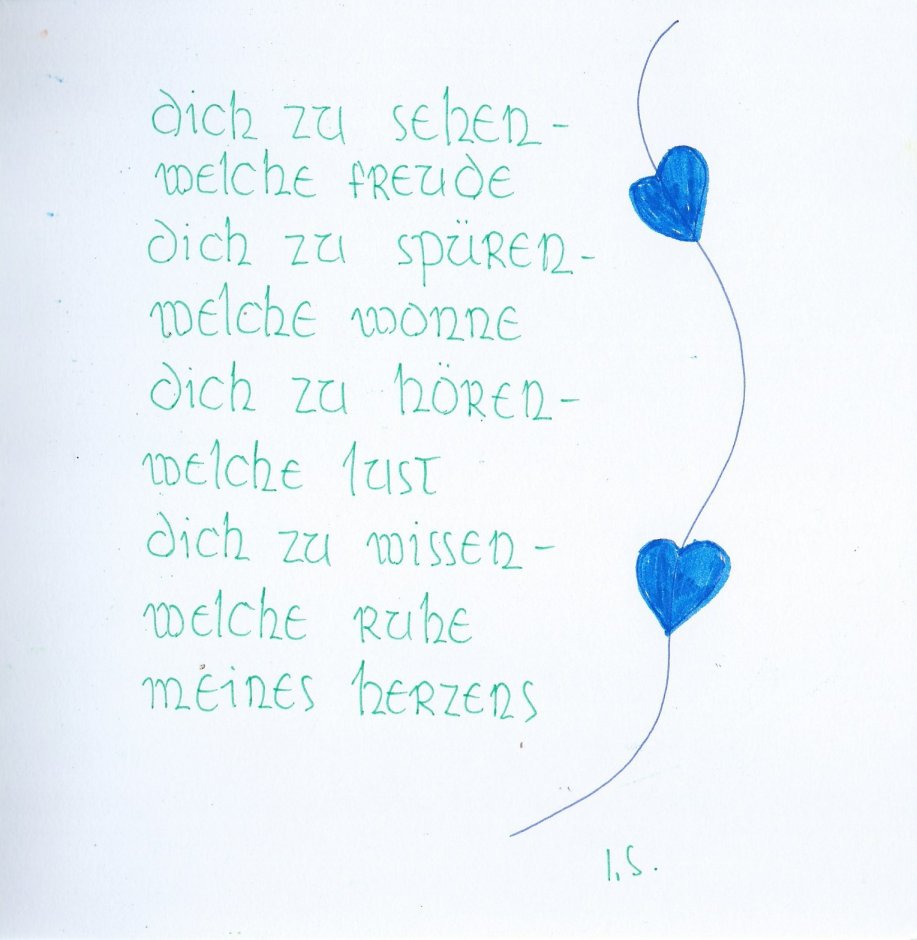 dich zu sehen -
welche freude
dich zu spüren -
welche wonne
dich zu hören -
welche lust
dich zu wissen -
welche ruhe
meines herzens
I.S.